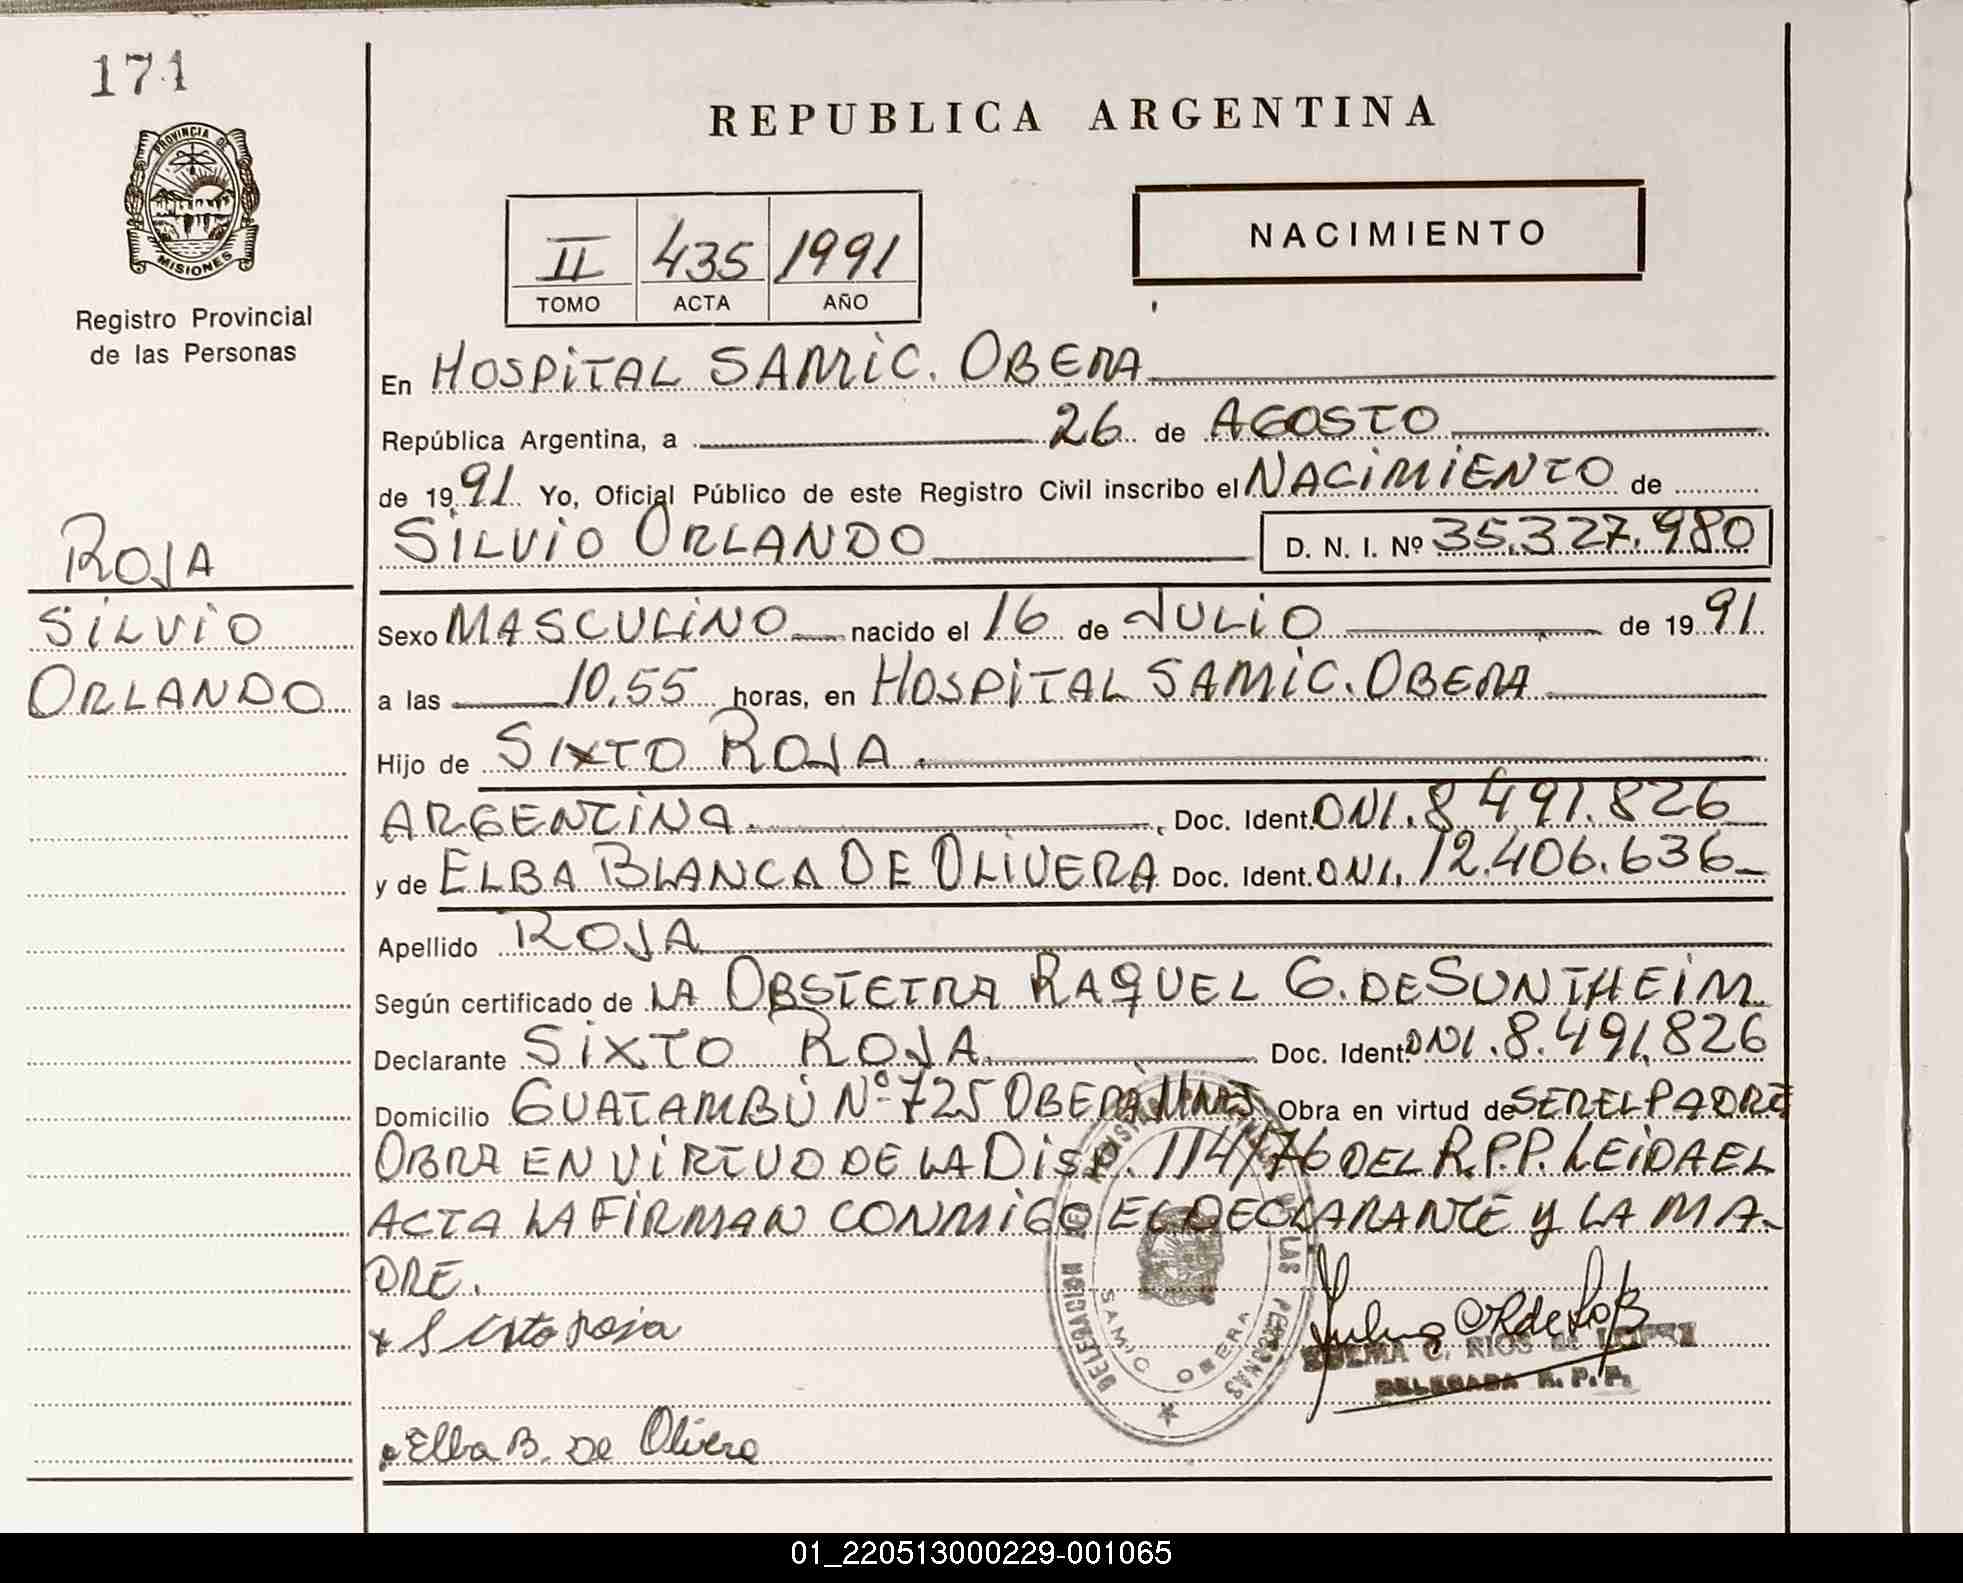 171
PROVINCIA DE
MISIONES
Registro Provincial
de las Personas
ROJA
SILVIO
ORLANDO
REPUBLICA ARGENTINA
II 435 1991
TOMO ACTA AÑO
NACIMIENTO
En HOSPITAL SAMIC. OBERA
República Argentina, a 26 de AGOSTO
de 1991 Yo, Oficial Público de este Registro Civil inscribo el NACIMIENTO de
SILVIO ORLANDO D. N. I. Nº 35.327.980
Sexo MASCULINO nacido el 16 de JULIO de 1991
a las 10,55 horas, en HOSPITAL SAMIC. OBERA
Hijo de SIXTO ROJA
ARGENTINA, Doc. Ident. DNI. 8.491.826
y de ELBA BLANCA DE OLIVERA Doc. Ident. DNI. 12.406.636
Apellido ROJA
Según certificado de LA OBSTETRA RAQUEL G. DE SUNTHEIM
Declarante SIXTO ROJA Doc. Ident. DNI. 8.491.826
Domicilio GUATAMBÚ Nº 725 OBERÁ MNES Obra en virtud de SER EL PADRE
OBRA EN VIRTUD DE LA DISP. 114/76 DEL R.P.P. LEIDA EL
ACTA LA FIRMAN CONMIGO EL DECLARANTE Y LA MA-
DRE.
x Sixto roja
Elba B. De Olivera
DELEGACION
DE LAS PERSONAS
SAMIC OBERA
C. RIOS de LOPEZ
DELEGADA R. P. P.
01_220513000229-001065